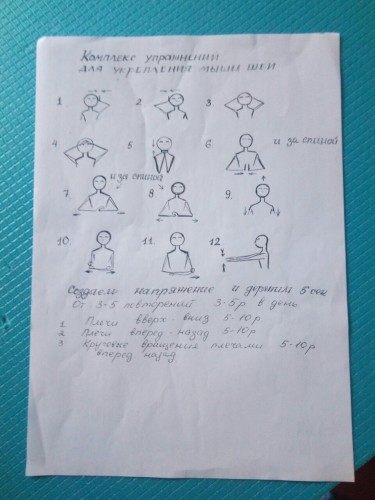 Комплекс упражнений
для укрепления мышц шеи
1. 2. 3.
4. 5. 6. и за спиной
и за спиной
7. 8. 9.
10. 11. 12.
Создаем напряжение и держим 5 сек
От 3-5 повторений 3-5 р в день
1 Плечи вверх - вниз 5-10 р.
2 Плечи вперед - назад 5-10 р
3 Круговые вращения плечами 5-10 р
вперед, назад